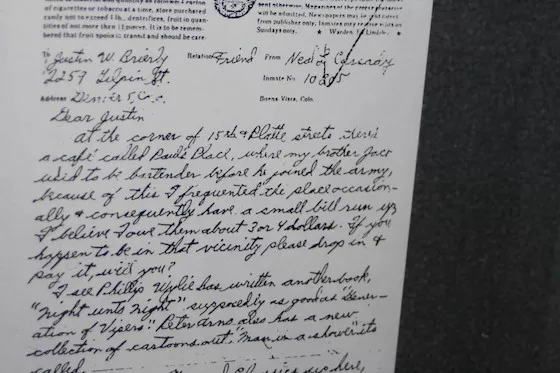 of cigarettes or tobacco at a time, store purchased
candy not to exceed 1 lb., dentrifices, fruit in quan-
tities of not more than 1 pound. It is to be remem-
bered that fruit spoils in transit and should be care-
sent otherwise. Magazines of the proper
will be admitted. Newspapers may be
from publisher only. Inmates may receive
Sundays only. ★ Warden,
To Justin W. Brierly Relation Friend From Neal L. Cassady
2259 Gilpin St. Inmate No.
Address Denver 5, Colo. Buena Vista, Colo.
Dear Justin
at the corner of 15th & Platte streets there's
a cafe called Paul's Place, where my brother Jack
used to be bartender before he joined the army,
because of this I frequented the place occasion-
ally & consequently have a small bill run up
I believe I owe them about 3 or 4 dollars. If you
happen to be in that vicinity please drop in &
pay it, will you?
I see Phillip Wylie has written another book,
"Night unto Night" supposedly as good as "Gener-
ation of Vipers". Peter Arno also has a new
collection of cartoons out. "Man in a shower" its
called